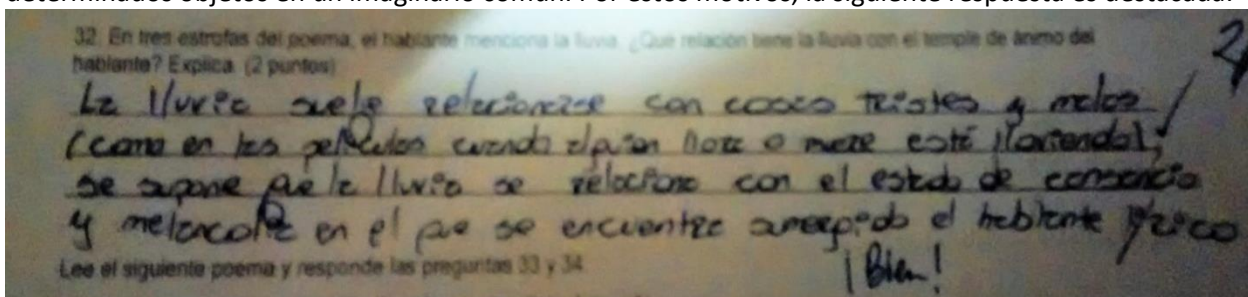 determinados objetos en un imaginario común. Por estos motivos, la siguiente respuesta es destacada:
32. En tres estrofas del poema, el hablante menciona la lluvia. ¿Qué relación tiene la lluvia con el temple de ánimo del
hablante? Explica. (2 puntos)
2
La lluvia suele relacionarse con cosas tristes y malas
(como en las películas cuando alguien llora o muere está lloviendo),
se supone que la lluvia se relaciona con el estado de
y melancolía en el que se encuentra sumergido el hablante lírico
¡Bien!
Lee el siguiente poema y responde las preguntas 33 y 34